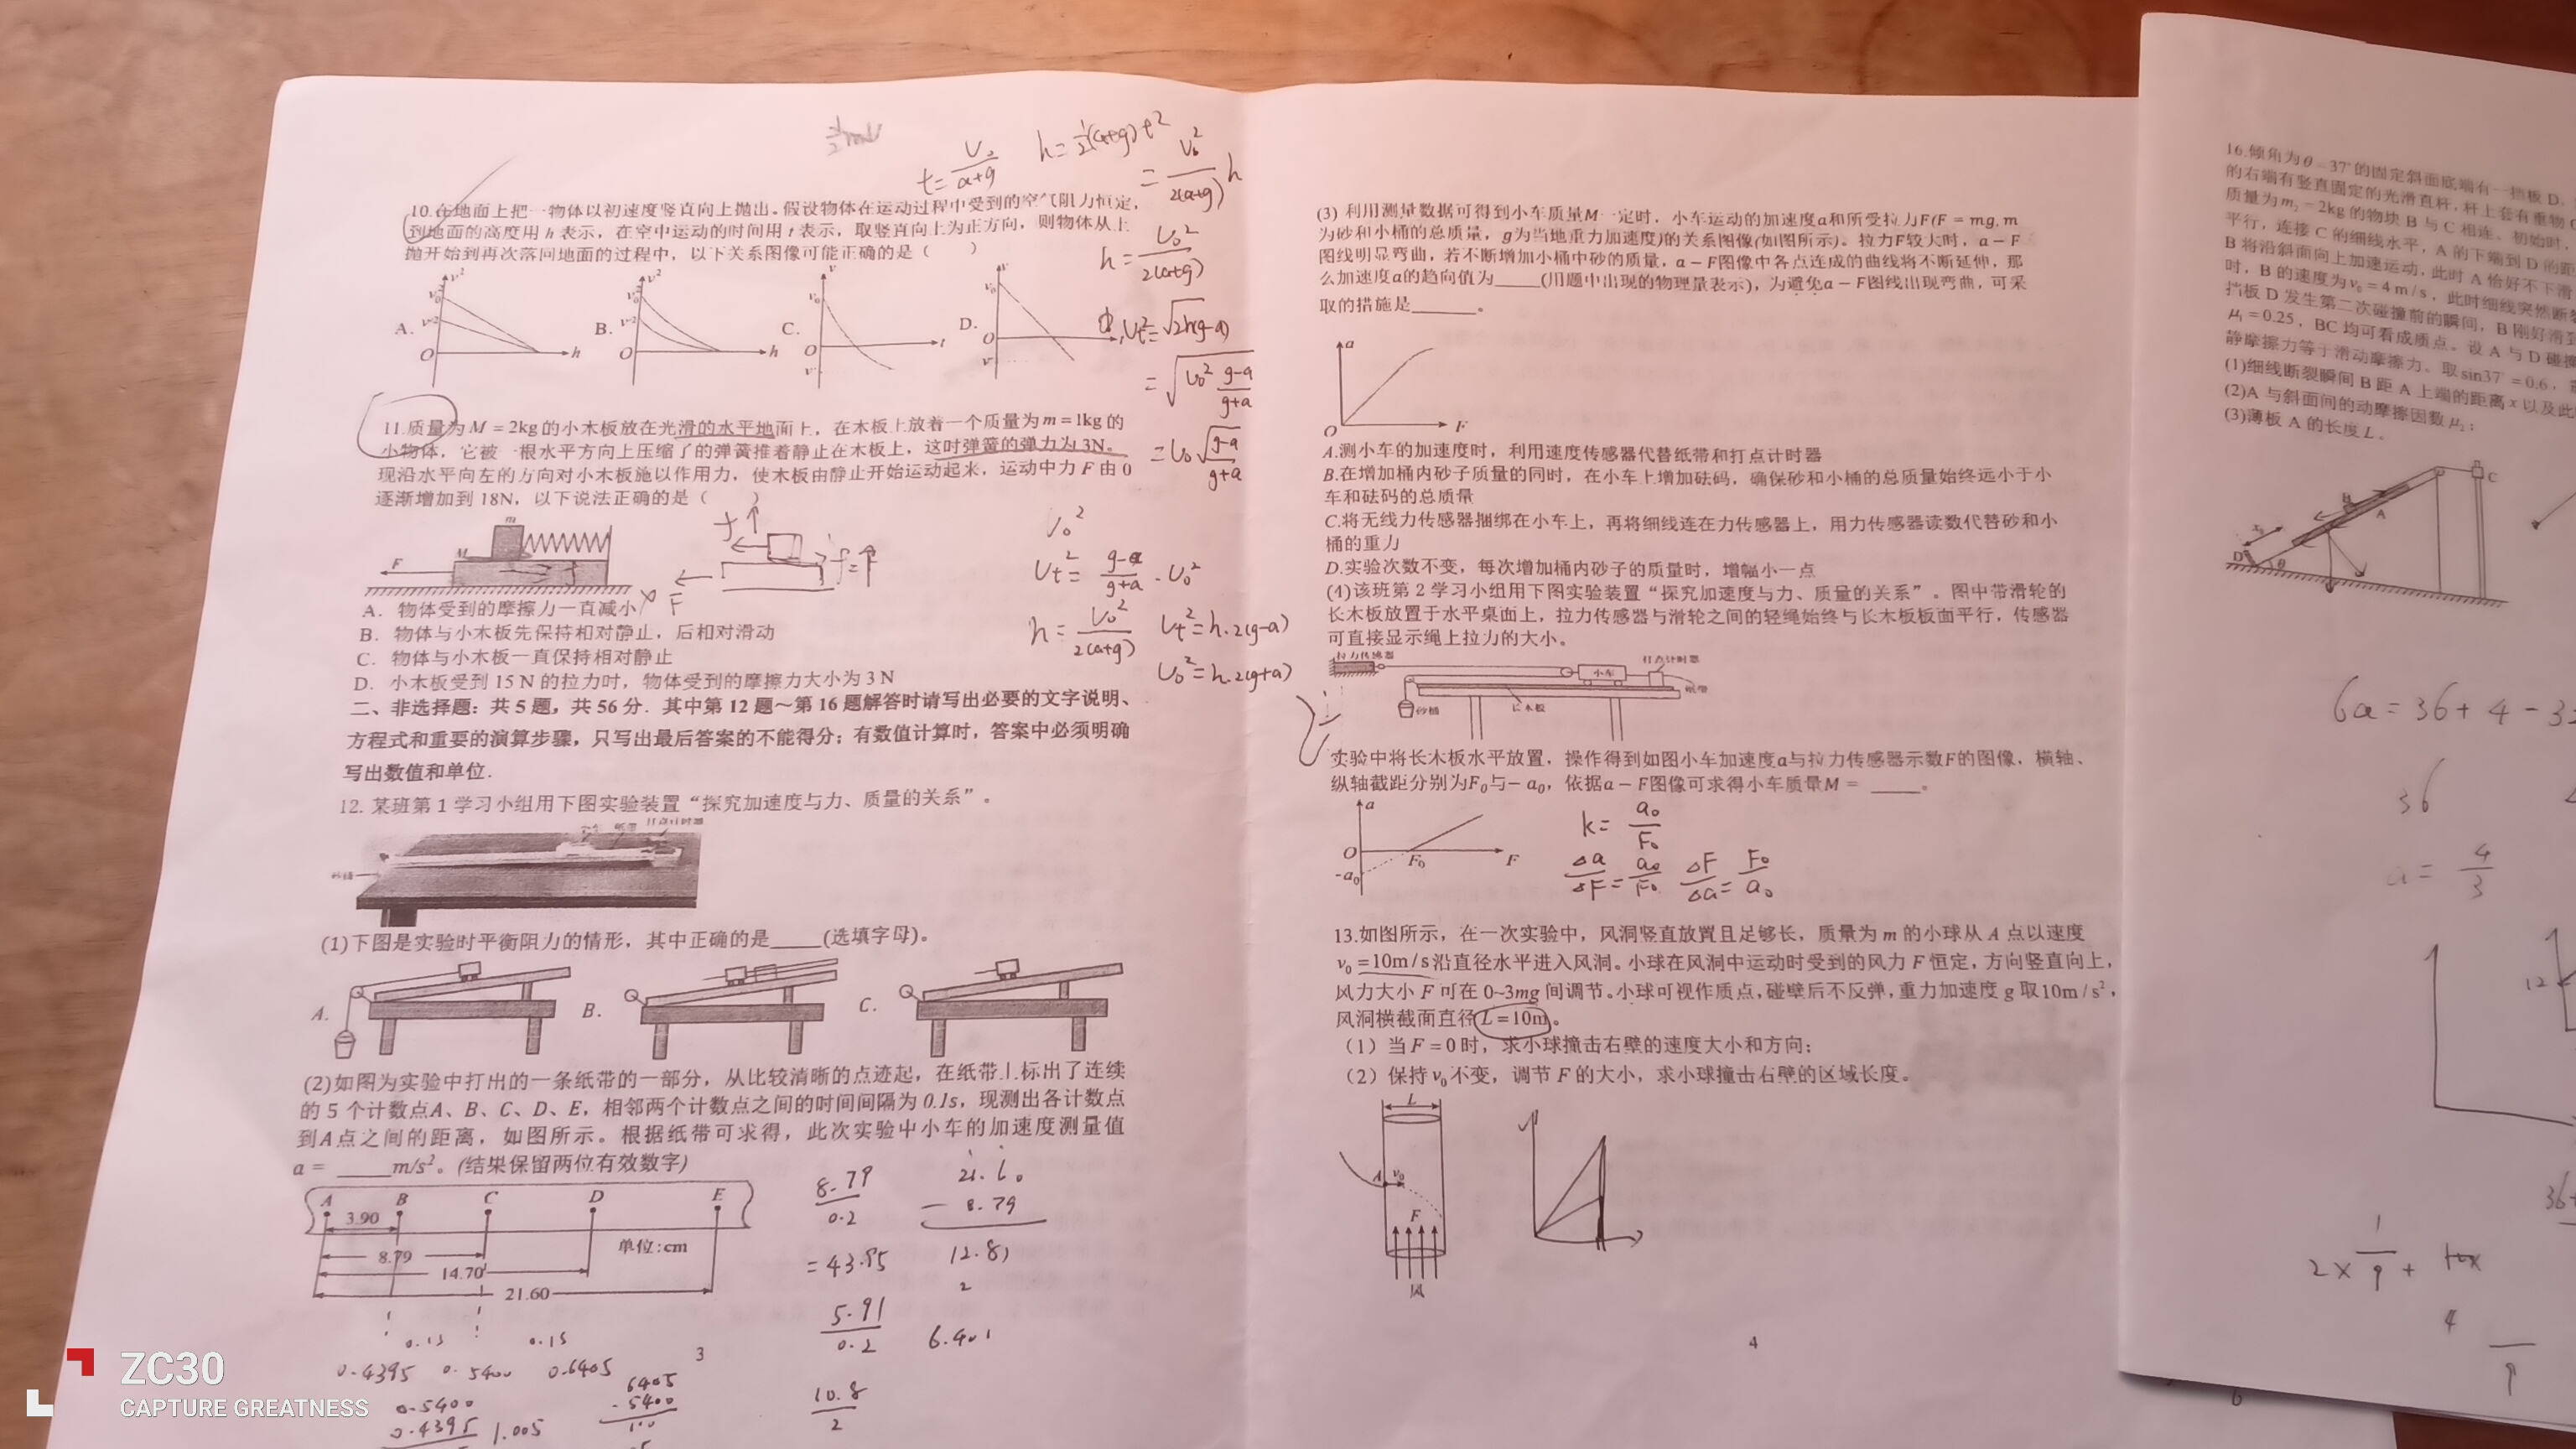 10.在地面上把一物体以初速度竖直向上抛出。假设物体在运动过程中受到的空气阻力恒定,
到地面的高度用 h 表示，在空中运动的时间用 t 表示，取竖直向上为正方向，则物体从上
抛开始到再次落回地面的过程中，以下关系图像可能正确的是（ ）
A. B. C. D.
11.质量为 M = 2kg 的小木板放在光滑的水平地面上，在木板上放着一个质量为 m = 1kg 的
小物体，它被一根水平方向上压缩了的弹簧推着静止在木板上，这时弹簧的弹力为 3N。
现沿水平向左的方向对小木板施以作用力，使木板由静止开始运动起来，运动中力 F 由 0
逐渐增加到 18N，以下说法正确的是（ ）
m
M
F
A．物体受到的摩擦力一直减小
B．物体与小木板先保持相对静止，后相对滑动
C．物体与小木板一直保持相对静止
D．小木板受到 15 N 的拉力时，物体受到的摩擦力大小为 3 N
二、非选择题：共 5 题，共 56 分．其中第 12 题～第 16 题解答时请写出必要的文字说明、
方程式和重要的演算步骤，只写出最后答案的不能得分；有数值计算时，答案中必须明确
写出数值和单位．
12. 某班第 1 学习小组用下图实验装置“探究加速度与力、质量的关系”。
(1)下图是实验时平衡阻力的情形，其中正确的是____(选填字母)。
A. B. C.
(2)如图为实验中打出的一条纸带的一部分，从比较清晰的点迹起，在纸带上标出了连续
的 5 个计数点A、B、C、D、E，相邻两个计数点之间的时间间隔为 0.1s，现测出各计数点
到A点之间的距离，如图所示。根据纸带可求得，此次实验中小车的加速度测量值
a = ____m/s²。(结果保留两位有效数字)
A B C D E
3.90
8.79
14.70
21.60
单位:cm
8.79
0.2
= 43.95
5.91
0.2
10.8
2
0.4395 0.5400 0.6405
0.5400
0.4395
1.005
6405
- 5400
3
t = V₀/(a+g)
h = V₀²/2(a+g)
= V₀√(g-a)/(g+a)
V₀²
Vt² = (g-a)/(g+a) · V₀²
h = V₀²/2(a+g) Vt² = h·2(g-a)
V₀² = h·2(g+a)
(3) 利用测量数据可得到小车质量M一定时，小车运动的加速度a和所受拉力F(F = mg, m
为砂和小桶的总质量，g为当地重力加速度)的关系图像(如图所示)。拉力F较大时，a－F
图线明显弯曲，若不断增加小桶中砂的质量，a－F图像中各点连成的曲线将不断延伸，那
么加速度a的趋向值为____(用题中出现的物理量表示)，为避免a－F图线出现弯曲，可采
取的措施是______。
a
O F
A.测小车的加速度时，利用速度传感器代替纸带和打点计时器
B.在增加桶内砂子质量的同时，在小车上增加砝码，确保砂和小桶的总质量始终远小于小
车和砝码的总质量
C.将无线力传感器捆绑在小车上，再将细线连在力传感器上，用力传感器读数代替砂和小
桶的重力
D.实验次数不变，每次增加桶内砂子的质量时，增幅小一点
(4)该班第 2 学习小组用下图实验装置“探究加速度与力、质量的关系”。图中带滑轮的
长木板放置于水平桌面上，拉力传感器与滑轮之间的轻绳始终与长木板板面平行，传感器
可直接显示绳上拉力的大小。
拉力传感器 小车 打点计时器
纸带
砂桶 长木板
实验中将长木板水平放置，操作得到如图小车加速度a与拉力传感器示数F的图像，横轴、
纵轴截距分别为F₀与－a₀，依据a－F图像可求得小车质量M = ____。
a
O F₀ F
-a₀
k = a₀/F₀
Δa/ΔF = a₀/F₀ ΔF/Δa = F₀/a₀
13.如图所示，在一次实验中，风洞竖直放置且足够长，质量为 m 的小球从 A 点以速度
v₀ = 10m/s 沿直径水平进入风洞。小球在风洞中运动时受到的风力 F 恒定，方向竖直向上，
风力大小 F 可在 0~3mg 间调节。小球可视作质点，碰壁后不反弹，重力加速度 g 取10m/s²，
风洞横截面直径 L = 10m。
（1）当 F = 0 时，求小球撞击右壁的速度大小和方向；
（2）保持 v₀ 不变，调节 F 的大小，求小球撞击右壁的区域长度。
L
A v₀
F
风
4
16.倾角为 θ = 37° 的固定斜面底端有一挡板 D，
的右端有竖直固定的光滑直杆，杆上套有重物
质量为 m₂ = 2kg 的物块 B 与 C 相连。初始时，
平行，连接 C 的细线水平，A 的下端到 D 的距
B 将沿斜面向上加速运动，此时 A 恰好不下滑
时，B 的速度为 v₀ = 4 m/s，此时细线突然断裂
挡板 D 发生第二次碰撞前的瞬间，B 刚好滑到
μ₁ = 0.25，BC 均可看成质点。设 A 与 D 碰撞
静摩擦力等于滑动摩擦力。取 sin37° = 0.6，
(1)细线断裂瞬间 B 距 A 上端的距离 x 以及此
(2)A 与斜面间的动摩擦因数 μ₂；
(3)薄板 A 的长度 L。
B A C
D θ
6a = 36 + 4 - 3
36
a = 4/3
12
6
ZC30
CAPTURE GREATNESS